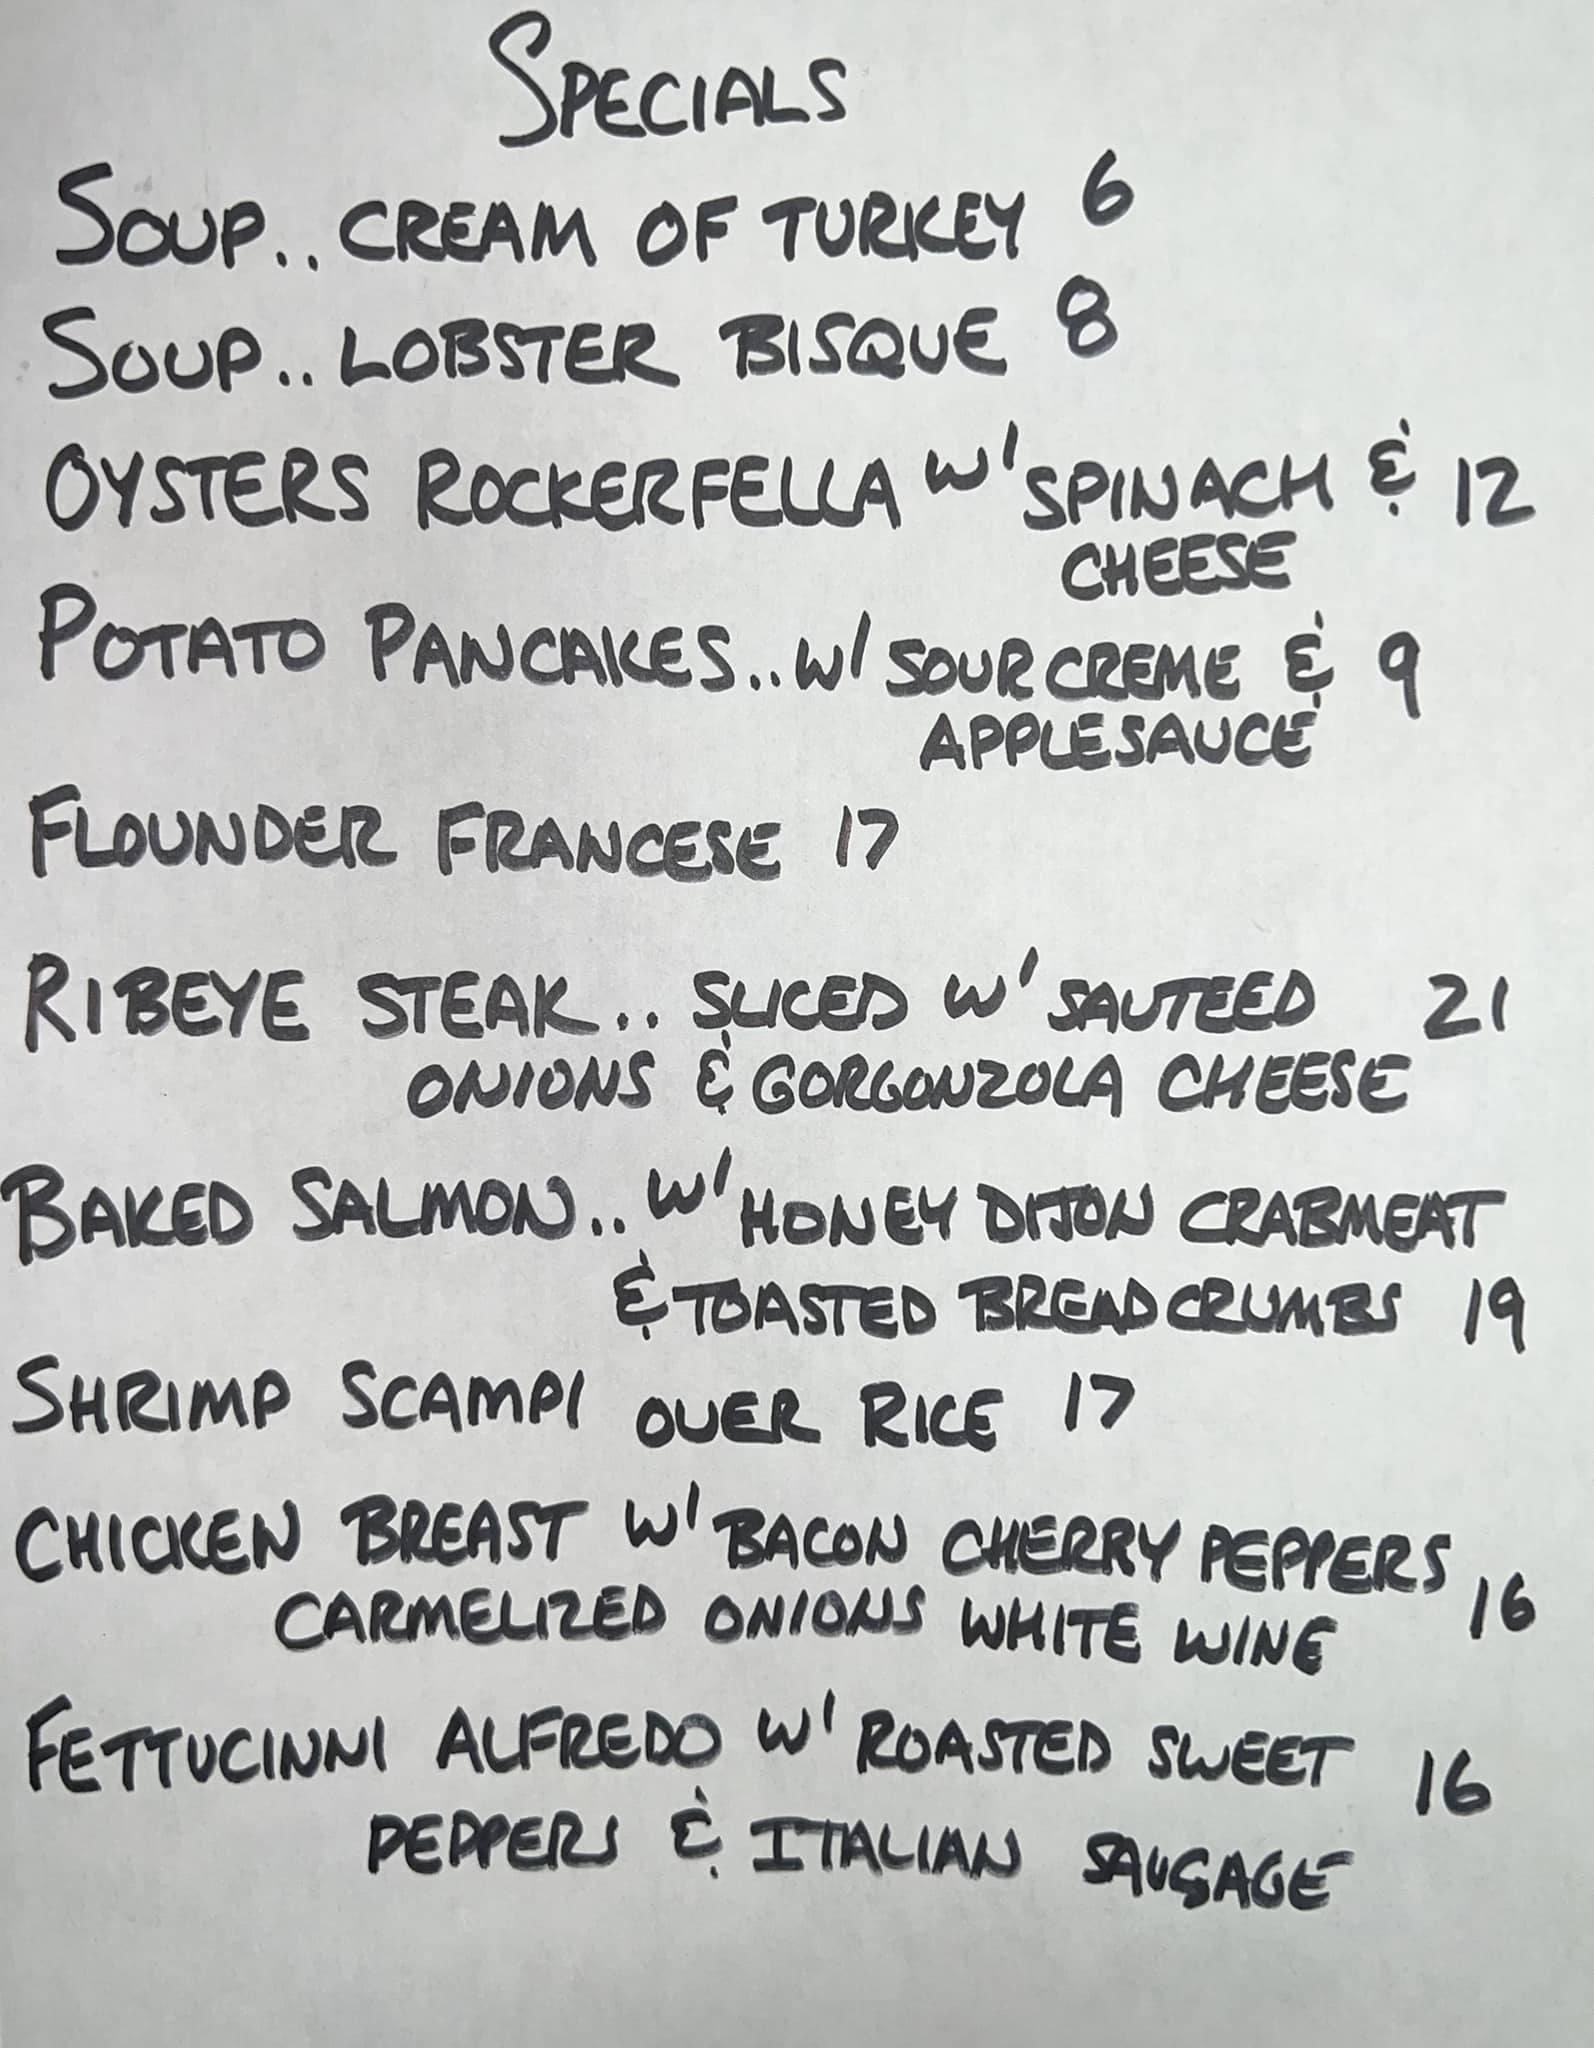 SPECIALS
SOUP.. CREAM OF TURKEY 6
SOUP.. LOBSTER BISQUE 8
OYSTERS ROCKERFELLA W/ SPINACH & 12
CHEESE
POTATO PANCAKES.. W/ SOUR CREME & 9
APPLESAUCE
FLOUNDER FRANCESE 17
RIBEYE STEAK.. SLICED W/ SAUTEED 21
ONIONS & GORGONZOLA CHEESE
BAKED SALMON.. W/ HONEY DIJON CRABMEAT
& TOASTED BREADCRUMBS 19
SHRIMP SCAMPI OVER RICE 17
CHICKEN BREAST W/ BACON CHERRY PEPPERS
CARMELIZED ONIONS WHITE WINE 16
FETTUCINNI ALFREDO W/ ROASTED SWEET 16
PEPPERS & ITALIAN SAUSAGE